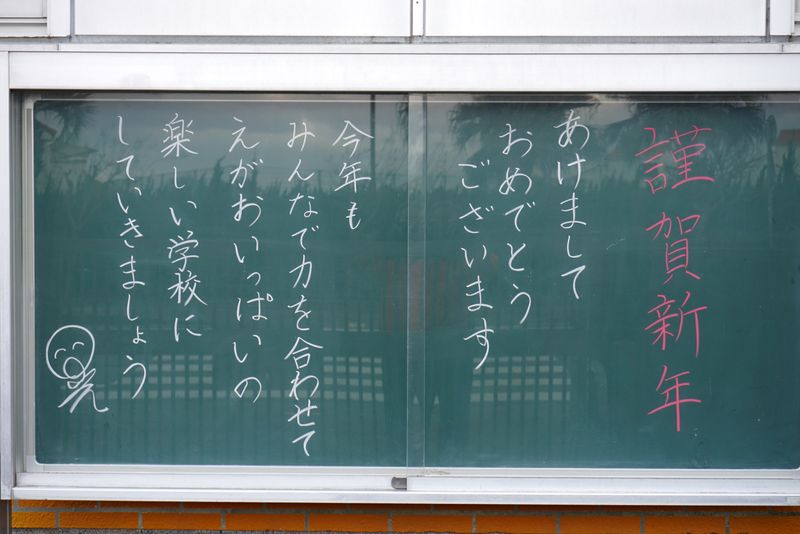 謹賀新年
あけまして
おめでとう
ございます
今年も
みんなで力を合わせて
えがおいっぱいの
楽しい学校に
していきましょう